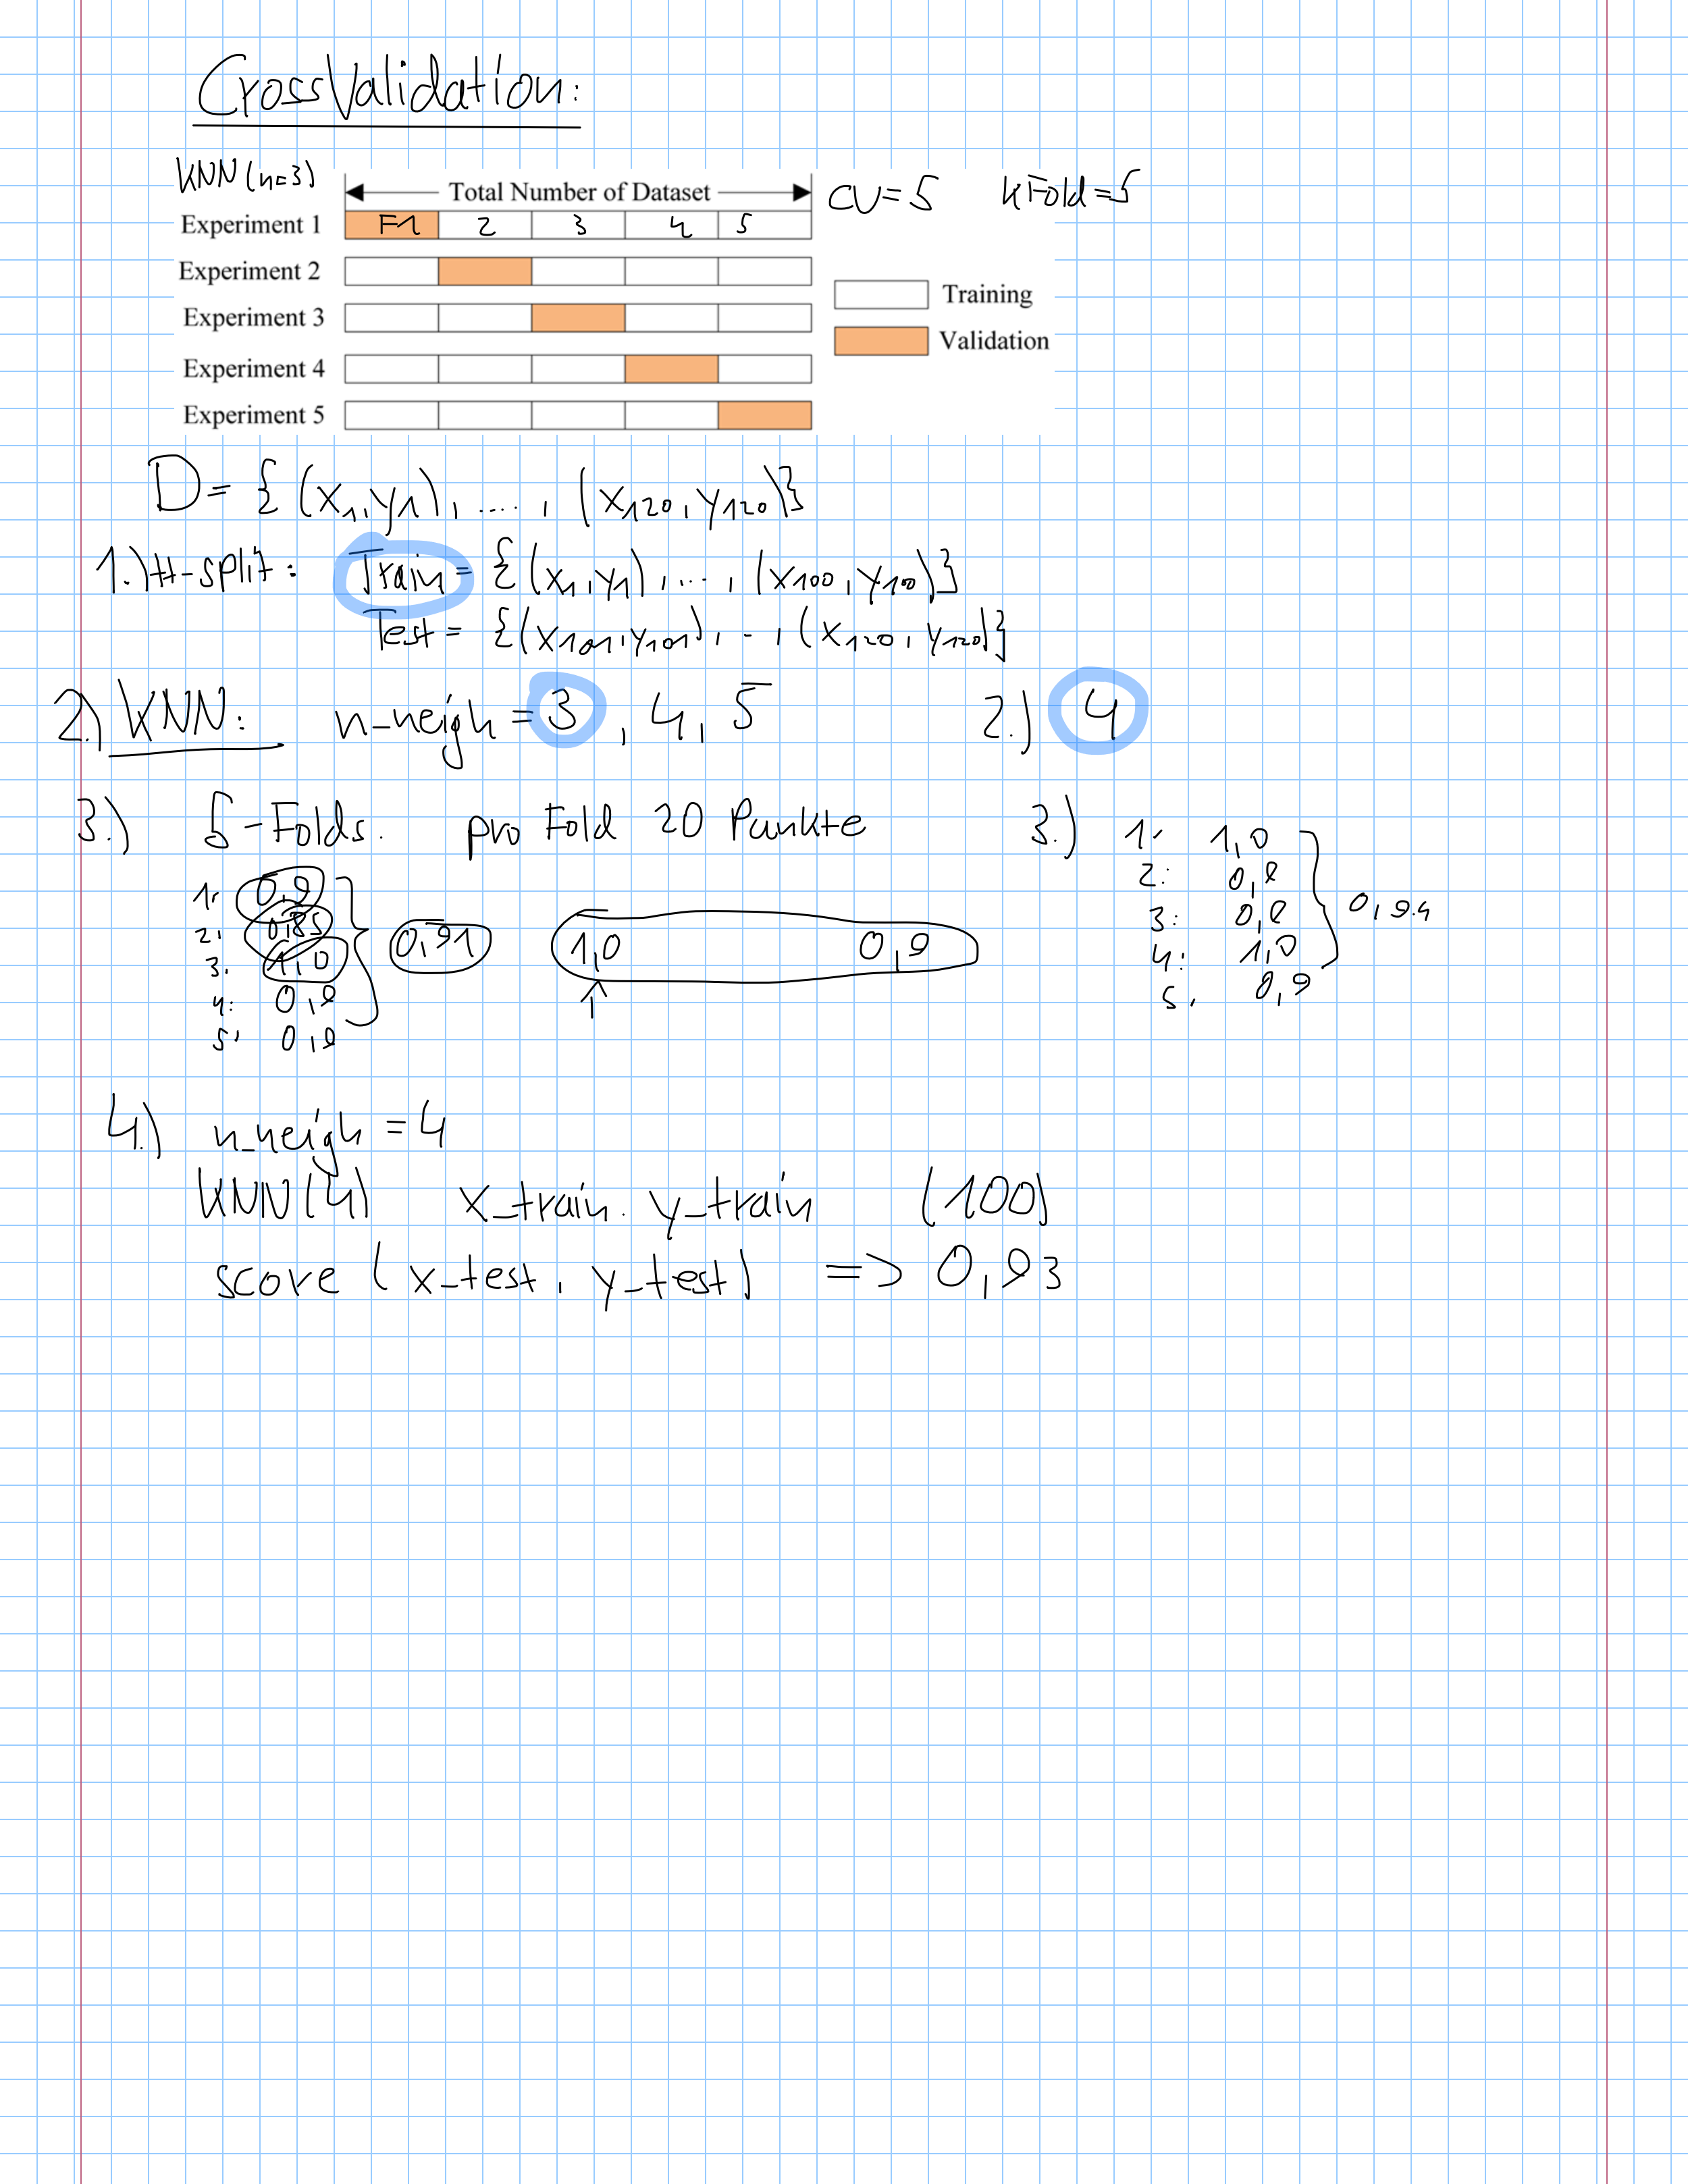 CrossValidation:
KNN(n=3)
Total Number of Dataset
CV=5 kFold=5
Experiment 1 F1 2 3 4 5
Experiment 2
Training
Experiment 3
Validation
Experiment 4
Experiment 5
D= { (x1,y1), ...., (x120,y120)}
1.) tt-split: Train = {(x1,y1),..., (x100,y100)}
Test = {(x101,y101), .., (x120,y120)}
2.) KNN: n_neigh = 3, 4, 5 2.) 4
3.) 5-Folds. pro Fold 20 Punkte 3.)
1: 0,9
2: 0,85
3. 1,0
4: 0,9
5: 0,9
0,91
1,0 0,9
1: 1,0
2: 0,9
3: 0,9
4: 1,0
5. 0,9
0,94
4.) n_neigh = 4
KNN(4) x_train. y_train (100)
score (x_test, y_test) => 0,93